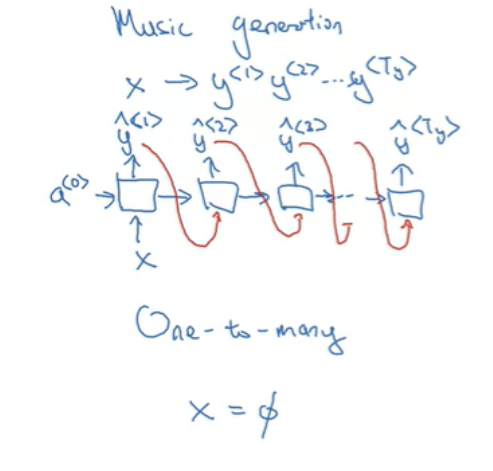 Music generation
x → y<1> y<2> ... y<Ty>
ŷ<1> ŷ<2> ŷ<2> ŷ<Ty>
a<0> → → → ... →
x
One-to-many
x = ϕ